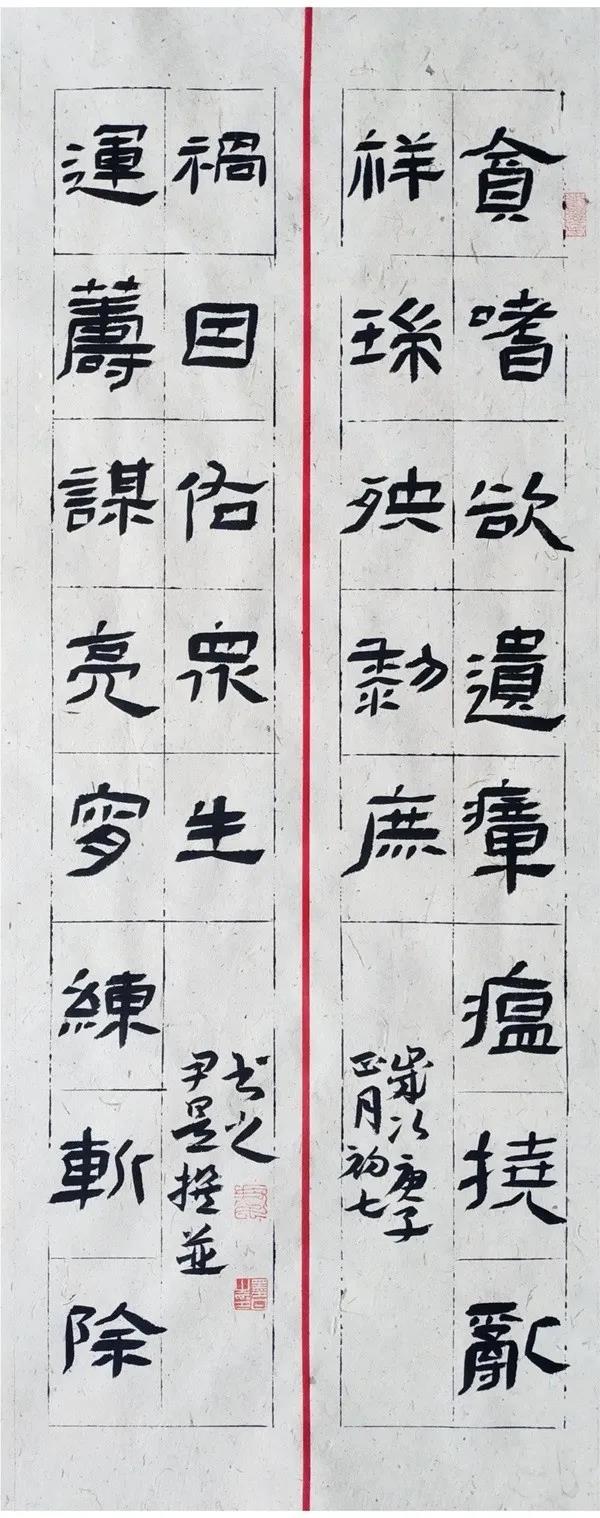 貪嗜欲遺瘴瘟撓亂
祥殃黎庶
歲次庚子
正月初七
禍因衆生
運籌謀亮練斬除
尹撰並
书之